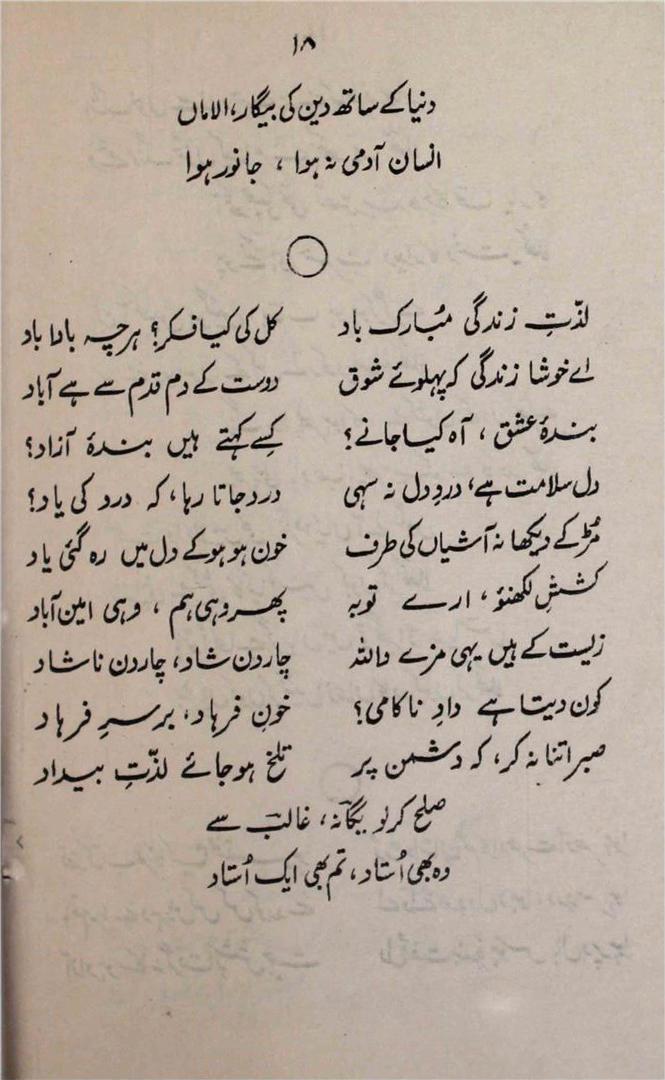 ۱۸
دنیا کے ساتھ دین کی بیگار، الاماں
انسان آدمی نہ ہوا ، جانور ہوا
لذّتِ زندگی مُبارک باد کل کی کیا فکر؟ ہرچہ بادا باد
اے خوشا زندگی کہ پہلوئے شوق دوست کے دم قدم سے ہے آباد
بندۂ عشق ، آہ کیا جانے؟ کِسے کہتے ہیں بندۂ آزاد؟
دل سلامت ہے، دردِ دل نہ سہی درد جاتا رہا، کہ درد کی یاد؟
مُڑ کے دیکھا نہ آشیاں کی طرف خون ہو ہو کے دل میں رہ گئی یاد
کششِ لکھنؤ ، ارے توبہ پھر وہی ہم ، وہی امین آباد
زیست کے ہیں یہی مزے واللہ چار دن شاد، چار دن ناشاد
کون دیتا ہے دادِ ناکامی؟ خونِ فرہاد، بر سرِ فرہاد
صبر اتنا نہ کر، کہ دشمن پر تلخ ہو جائے لذّتِ بیداد
صلح کر لو یگانہؔ، غالبؔ سے
وہ بھی اُستاد، تم بھی ایک اُستاد